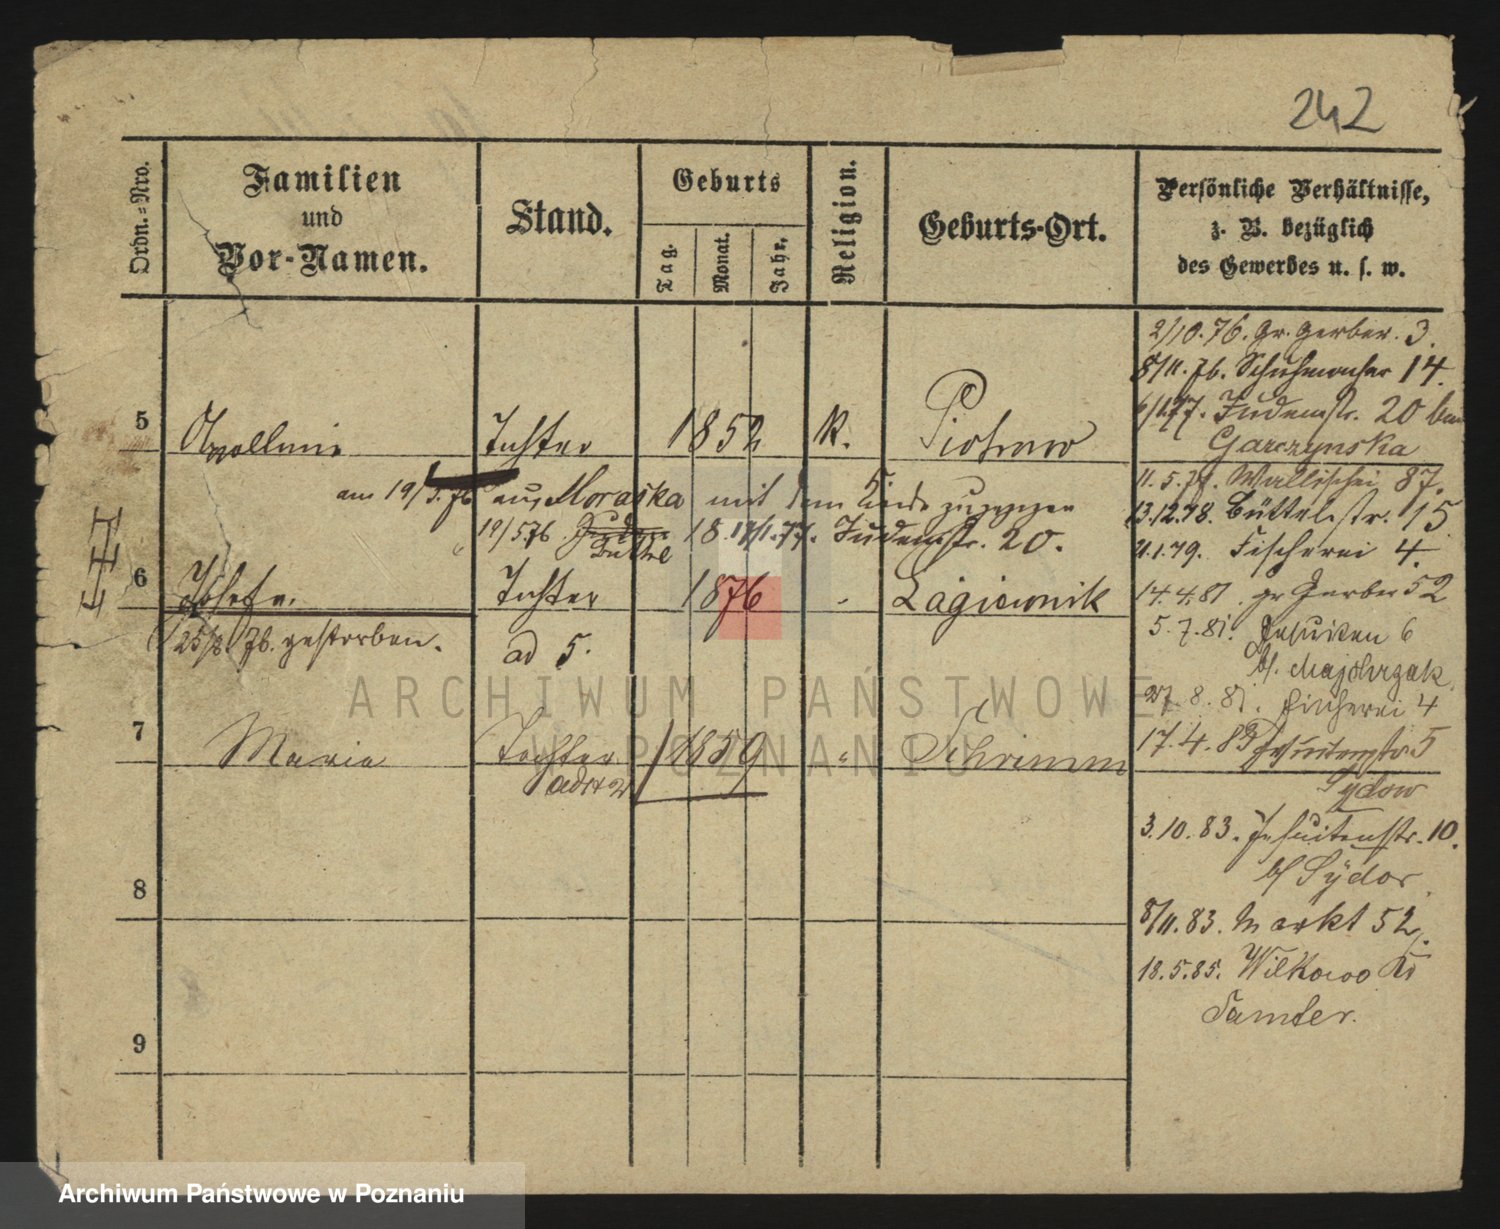 242
Ordn.=Nro.
Familien
und
Vor-Namen.
Stand.
Geburts
Tag.
Monat.
Jahr.
Religion.
Geburts-Ort.
Persönliche Verhältnisse,
z. B. bezüglich
des Gewerbes u. s. w.
2/10.76. gr. Gerber. 3.
8/11.76. Schuhmacher 14.
Judenstr. 20 bei
Garczynska
5
Apollonia
Tochter
1852
K.
Piotrowo
11.5.78. Wallischei 87.
am 19/5.76 aus Moraska mit dem Kinde zugezogen
13.12.78. Büttelstr. 15
19/5 76 Büttel 18. 17/1.77. Judenstr. 20.
21.1.79. Fischerei 4.
6
Josefa.
Tochter
1876
Lagiewnik
14.4.81. gr Gerber 52
25/8 76. gestorben.
ad 5.
5.7.81. Jesuiten 6
b/. Majchrzak
27.8.81. Fischerei 4
7
Maria
Tochter
1859
"
Schrimm
17.4.83 Jesuitenstr. 5
Sydow
3.10.83. Jesuitenstr. 10.
b/ Sydor
8
8/11.83. Markt 52.
18.5.85. Wilkowo Kr
Samter.
9
ARCHIWUM PAŃSTWOWE
W POZNANIU
Archiwum Państwowe w Poznaniu